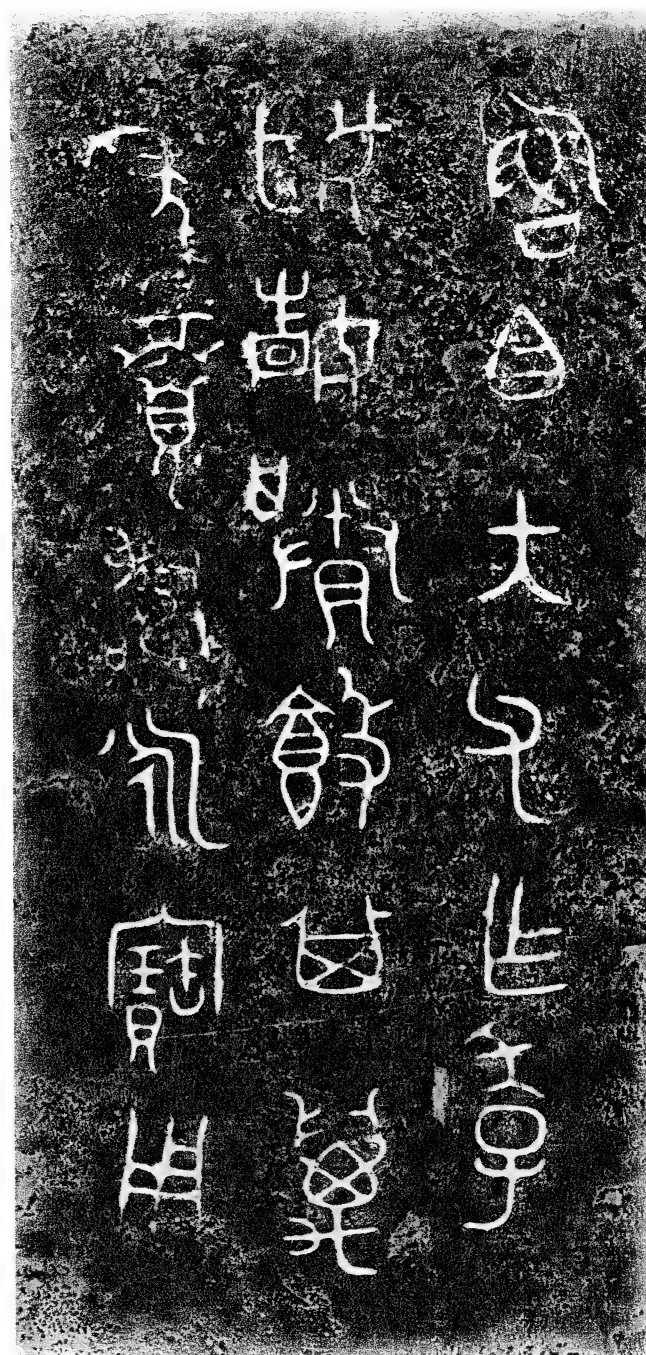 魯白大父乍季
姬婧賸𣪘其萬
年眉壽永寶用